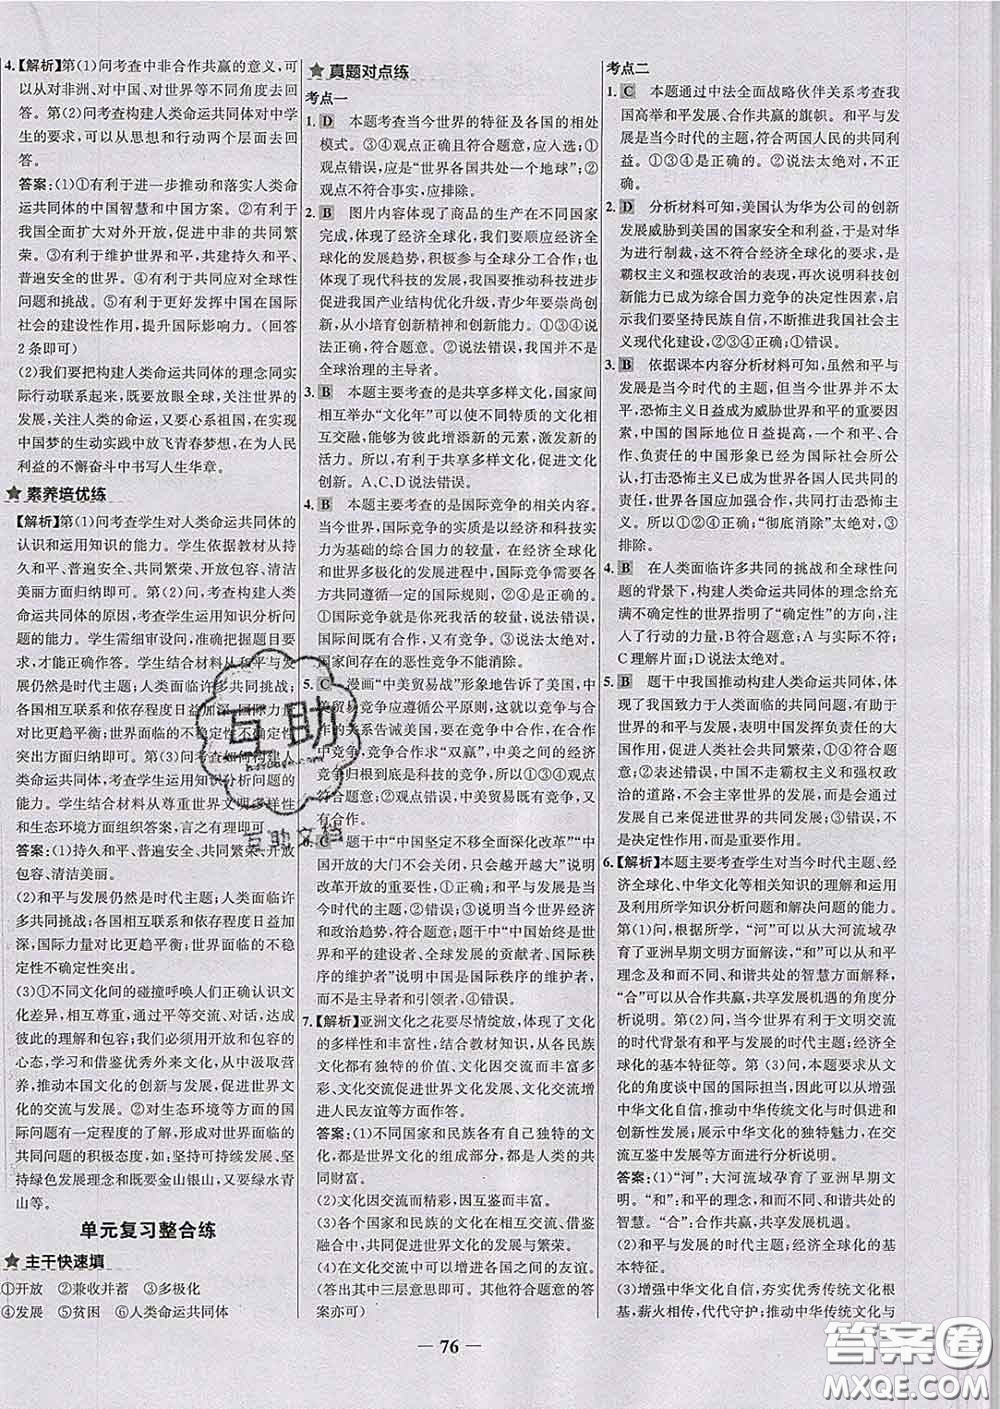 4.【解析】第(1)问考查中非合作共赢的意义,可
以从对非洲、对中国、对世界等不同角度去回
答。第(2)问考查构建人类命运共同体对中学
生的要求,可以从思想和行动两个层面去回
答。
答案:(1)①有利于进一步推动和落实人类命
运共同体的中国智慧和中国方案。②有利于
我国全面扩大对外开放,促进中非的共同繁
荣。③有利于维护世界和平,共建持久和平、
普遍安全的世界。④有利于共同应对全球性
问题和挑战。⑤有利于更好发挥中国在国际
社会的建设性作用,提升国际影响力。(回答
2条即可)
(2)我们要把构建人类命运共同体的理念同实
际行动联系起来,既要放眼全球,关注世界的
发展,关注人类的命运,又要心系祖国,在实现
中国梦的生动实践中放飞青春梦想,在为人民
利益的不懈奋斗中书写人生华章。
★ 素养培优练
【解析】第(1)问考查学生对人类命运共同体的
认识和运用知识的能力。学生依据教材从持
久和平、普遍安全、共同繁荣、开放包容、清洁
美丽方面归纳即可。第(2)问,考查构建人类命
运共同体的原因,考查学生运用知识分析问
题的能力。学生需细审设问,准确把握题目要
求,才能正确作答。学生结合材料从和平与发
展仍然是时代主题;人类面临许多共同挑战;
各国相互联系和依存程度日益加深;国际力量
对比更趋平衡;世界面临的不稳定性不确定性
突出方面归纳即可。第(3)问考查如何构建人
类命运共同体,考查学生运用知识分析问题的
能力。学生结合材料从尊重世界文明多样性
和生态环境方面组织答案,言之有理即可。
答案:(1)持久和平、普遍安全、共同繁荣、开放
包容、清洁美丽。
(2)和平与发展仍然是时代主题;人类面临许
多共同挑战;各国相互联系和依存程度日益加
深;国际力量对比更趋平衡;世界面临的不稳
定性不确定性突出。
(3)①不同文化间的碰撞呼唤人们正确认识文
化差异,相互尊重,通过平等交流、对话,达成
彼此的理解和包容;我们必须用开放和包容的
心态,学习和借鉴优秀外来文化,从中汲取营
养,推动本国文化的创新与发展,促进世界文
化的交流与发展。②对生态环境等方面的国
际问题有一定程度的了解,形成对世界面临的
共同问题的积极态度;坚持可持续发展战略、
坚持绿色发展理念和既要金山银山,又要绿水青
山等。
单元复习整合练
★ 主干快速填
①开放 ②兼收并蓄 ③多极化
④发展 ⑤贫困 ⑥人类命运共同体
★ 真题对点练
考点一
1. D 本题考查当今世界的特征及各国的相处
模式。③④观点正确且符合题意,应入选;①
观点错误,应是“世界各国共处一个地球”;②
观点不符合事实,应排除。
2. B 图片内容体现了商品的生产在不同国家
完成,体现了经济全球化,我们要顺应经济全
球化的发展趋势,积极参与全球分工合作;也
体现了现代科技的发展,我国要推动科技进步
促进我国产业结构优化升级,青少年要崇尚创
新,从小培育创新精神和创新能力。①③④说
法正确,符合题意。②说法错误,我国并不是
全球治理的主导者。
3. B 本题主要考查的是共享多样文化,国家间
相互举办“文化年”可以使不同特质的文化
相互交融,能够彼此增添新的元素,激发新的
活力。所以,有利于共享多样文化,促进文化
创新。A、C、D说法错误。
4. B 本题主要考查的是国际竞争的相关内容。
当今世界,国际竞争的实质是以经济和科技实
力为基础的综合国力的较量,在经济全球化
和世界多极化的发展进程中,国际竞争需要各
方共同遵循一定的国际规则,②④是正确的。
①国际竞争不是你死我活的较量,说法错误,
国际间既有合作,又有竞争。③说法错误,
国家间存在的恶性竞争不能消除。
5. C 漫画“中美贸易战”形象地告诉了美国,中
美竞争应遵循公平原则,这就要以对话与合
作的关系告诫美国,要在竞争中合作,在合作
中竞争,竞争合作求“双赢”,中美之间的经济
竞争归根到底是科技的竞争,所以①③④正确
符合题意;②观点错误,中美贸易战既有竞
争,又有合作。
C 题干中“中国坚定不移全面深化改革”“中
国开放的大门不会关闭,只会越开越大”说明
改革开放的作用,①正确;和平与发展才是
当今时代的主题,②错误;说明当今世界经济
和政治趋势,③正确;题干中“中国始终是世
界和平的建设者、全球发展的贡献者、国际秩
序的维护者”说明中国是国际秩序的维护者,
而不是主导者,④错误。
7.【解析】亚洲文化之花要尽情绽放,体现了文化
的多样性和丰富性,结合教材知识,从各民族
文化、文化因交流而精彩,因互鉴而丰富多
彩、文化交流促进世界文化发展、文化交流增
进人民友谊等方面作答。
答案:(1)不同国家和民族各有自己独特的文
化,都是世界文化的组成部分,都是人类的共
同财富。
(2)文化因交流而精彩,因互鉴而丰富。
(3)各个国家和民族的文化在相互交流、借鉴
融合中,共同促进世界文化的发展与繁荣。
(4)在文化交流中增进各国之间的友谊。
(答出其中三层意思即可。其他符合题意的答
案亦可)
考点二
1. C 本题通过中法全面战略伙伴关系考查我
国高举和平、发展、合作共赢的旗帜。和平与
发展是当今时代的主题,符合两国人民的共同利
益。①③④是正确的。②说法太绝对,不正
确。
2. D 分析材料可知,美国认为华为公司的创新
发展威胁到美国的国家安全和利益,于是对华
为进行制裁,这不符合经济全球化的要求,是
霸权主义和强权政治的表现,再次说明科技创
新能力已成为综合国力竞争的决定性因素,启
示我们要坚持民族自信,不断推进我国社会主
义现代化建设;①错误。
3. B 依据课本内容分析材料可知,虽然和平与
发展是当今时代的主题,但当今世界并不太
平,恐怖主义日益成为威胁世界和平的重要因
素,中国的国际地位日益提高了,和平、合
作、负责任的中国形象已经为国际社会所公
认,打击恐怖主义,维护世界安全是国际社会
共同的责任,要加强国际合作,共同打击恐怖主
义。所以①②④正确;“彻底消除”太绝对,③
排除。
4. B 在人类面临许多共同的挑战和全球性问
题的背景下,构建人类命运共同体的理念给充
满不确定性的世界指明了“确定性”的方向,注
入了行动的力量,B符合题意;A与实际不符;
C理解片面;D说法太绝对。
5. B 题干中我国推动构建人类命运共同体,体
现了我国致力于人类面临的共同问题,有助于
推动世界的和平与发展,表明中国发挥负责任的大
国作用,促进人类社会共同繁荣,①④符合题
意;②表述错误,中国不走霸权主义和强权政治
的道路,不会主宰世界的发展;③错误,中国主要依靠
发展自己来促进世界的发展,③错误,不
是决定性作用,而是重要作用。
6.【解析】本题主要考查学生对当今时代主题、经
济全球化、中华文化等相关知识的理解和运用
及利用所学知识分析问题和解决问题的能力。
第(1)问,根据所学,“河”可以从大河流域孕
育了亚洲早期文明方面解读,“和”可以从和平
理念及和而不同、和谐共处的智慧方面解释,
“合”可以从合作共赢,共享发展机遇的角度分析
说明。第(2)问,世界各国有利于文明交流
的时代背景有和平与发展的时代主题;经济全
球化的基本特征等。第(3)问,本题要求从文
化的角度谈中国的国际担当,因此可以从增强
文化自信,推动中华传统文化与时俱进
和创新性发展;展示中华文化的独特魅力,在
交流互鉴中发展等方面进行分析说明。
答案:(1)“河”:大河流域孕育了亚洲早期文
明。“和”:和平的理念,和而不同、和谐共处的
智慧。“合”:合作共赢,共享发展机遇。
(2)和平与发展的时代主题;经济全球化的基
本特征。
(3)增强中华文化自信,夯实优秀传统文化
根基,薪火相传,代代守护;推动中华传统文化与
— 76 —
互助
互助文档
答案圈
MXQE.COM